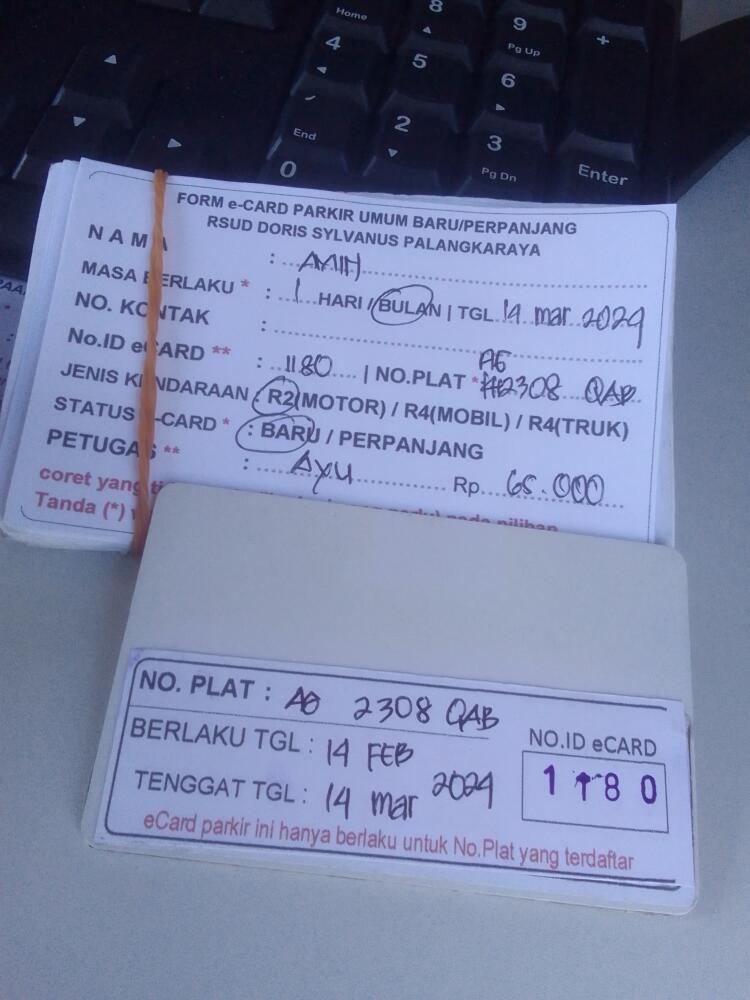 Home
8
9
Pg Up
+
4
5
6
End
2
3
Pg Dn
Enter
0
FORM e-CARD PARKIR UMUM BARU/PERPANJANG
RSUD DORIS SYLVANUS PALANGKARAYA
NAMA : AMIH
MASA BERLAKU * : 1 HARI / BULAN | TGL 14 mar 2024
NO. KONTAK :
No.ID eCARD ** : 1180 | NO.PLAT * 2308 QAB
JENIS KENDARAAN : R2(MOTOR) / R4(MOBIL) / R4(TRUK)
STATUS E-CARD * : BARU / PERPANJANG
PETUGAS ** : Ayu Rp 65.000
coret yang pada pilihan
Tanda (*)
NO. PLAT : 2308 QAB
BERLAKU TGL : 14 FEB
TENGGAT TGL : 14 mar 2024
NO.ID eCARD
1 1 8 0
eCard parkir ini hanya berlaku untuk No.Plat yang terdaftar